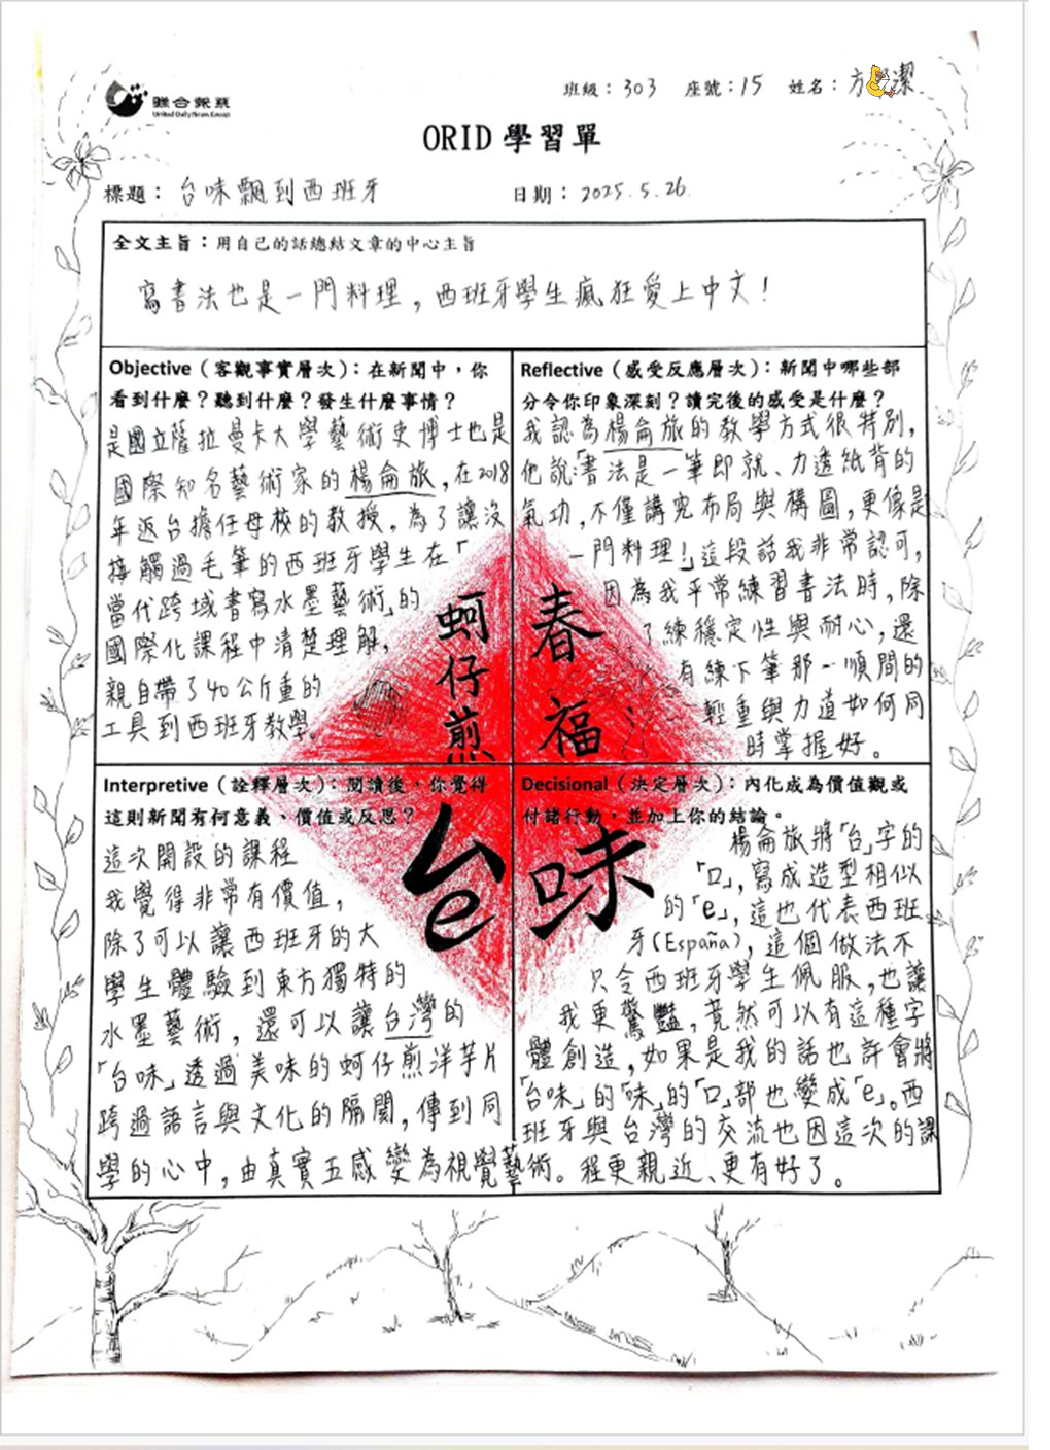 聯合報系
United Daily News Group
班級：303 座號：15 姓名：方 潔
ORID 學習單
標題：台味飄到西班牙 日期：2025.5.26.
全文主旨：用自己的話總結文章的中心主旨
寫書法也是一門料理，西班牙學生瘋狂愛上中文！
Objective（客觀事實層次）：在新聞中，你
看到什麼？聽到什麼？發生什麼事情？
是國立薩拉曼卡大學藝術史博士也是
國際知名藝術家的楊侖旅，在2018
年返台擔任母校的教授。為了讓沒
接觸過毛筆的西班牙學生在「
當代跨域書寫水墨藝術」的
國際化課程中清楚理解，
親自帶了40公斤重的
工具到西班牙教學。
Reflective（感受反應層次）：新聞中哪些部
分令你印象深刻？讀完後的感受是什麼？
我認為楊侖旅的教學方式很特別，
他說：「書法是一筆即就、力透紙背的
氣功，不僅講究布局與構圖，更像是
一門料理！」這段話我非常認可，
因為我平常練習書法時，除
了練穩定性與耐心，還
有練下筆那一順間的
輕重與力道如何同
時掌握好。
蚵仔煎
春福
Interpretive（詮釋層次）：閱讀後，你覺得
這則新聞有何意義、價值或反思？
這次開設的課程
我覺得非常有價值，
除了可以讓西班牙的大
學生體驗到東方獨特的
水墨藝術，還可以讓台灣的
「台味」透過美味的蚵仔煎洋芋片
跨過語言與文化的隔閡，傳到同
學的心中，由真實五感變為視覺藝術。
台味
Decisional（決定層次）：內化成為價值觀或
付諸行動，並加上你的結論。
楊侖旅將「台」字的
「口」，寫成造型相似
的「e」，這也代表西班
牙(España)，這個做法不
只令西班牙學生佩服，也讓
我更驚豔，竟然可以有這種字
體創造，如果是我的話也許會將
「台味」的「味」的「口」部也變成「e」。西
班牙與台灣的交流也因這次的課
程更親近、更有好了。